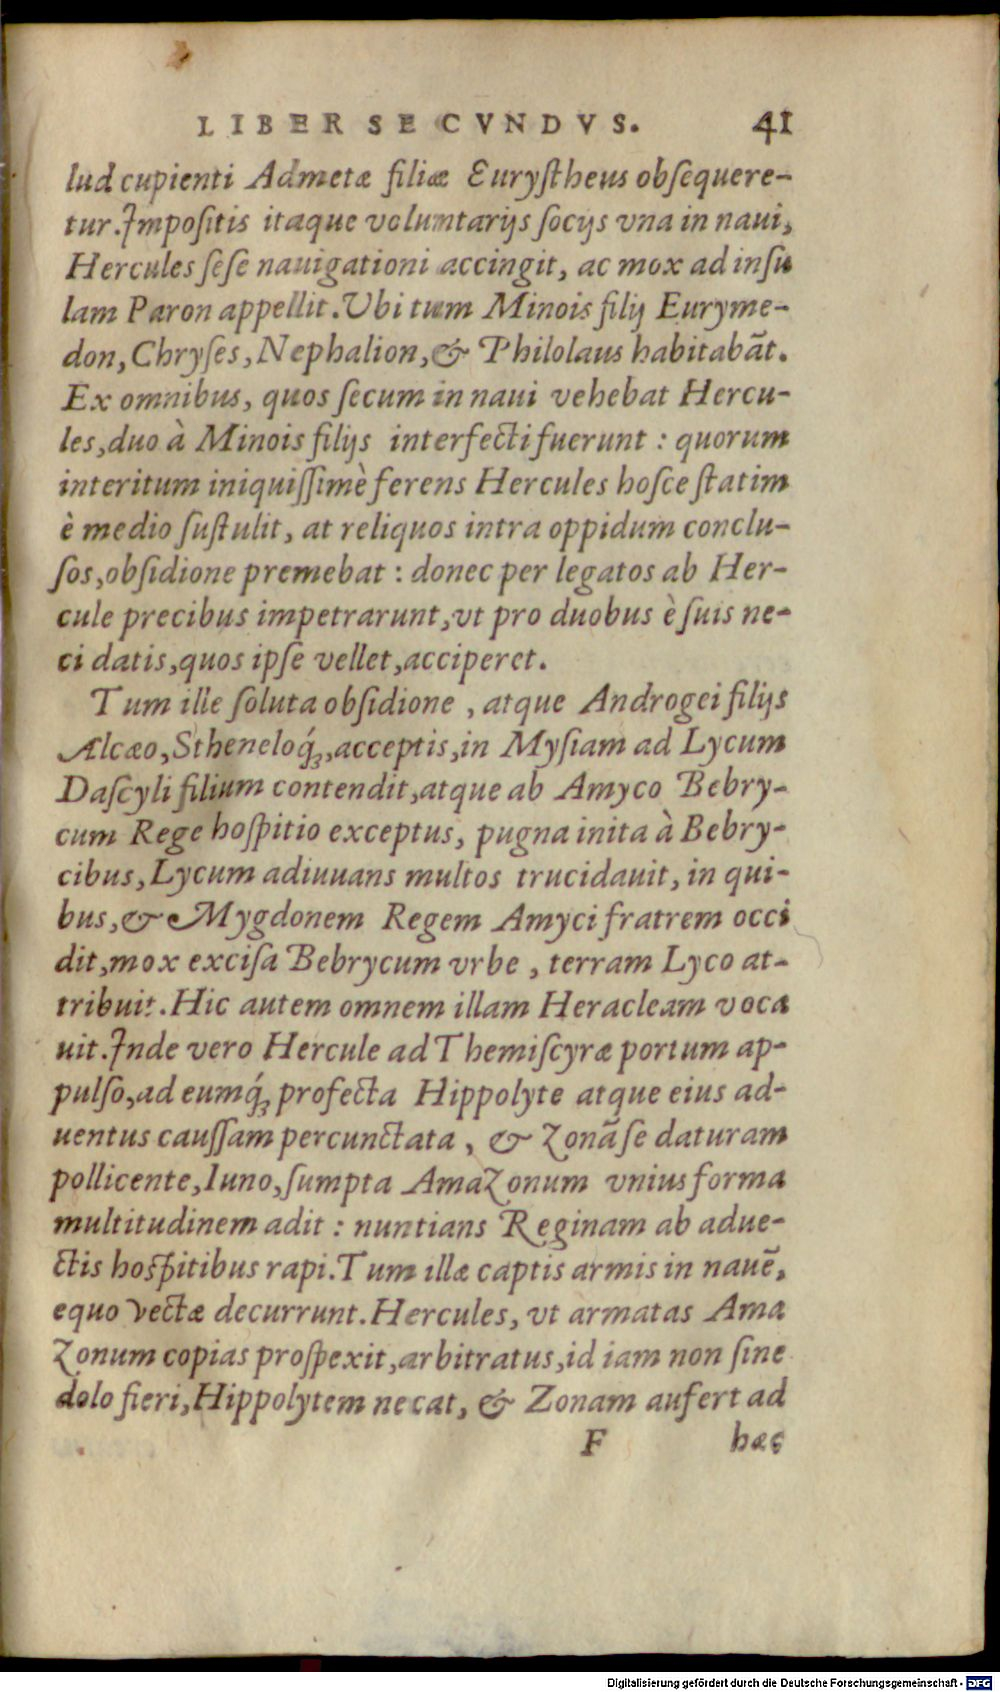 LIBER SECVNDVS. 41
lud cupienti Admetæ filiæ Eurystheus obsequere-
tur. Impositis itaque voluntarijs socijs vna in naui,
Hercules sese nauigationi accingit, ac mox ad insu
lam Paron appellit. Vbi tum Minois filij Euryme-
don, Chryses, Nephalion, & Philolaus habitabāt.
Ex omnibus, quos secum in naui vehebat Hercu-
les, duo à Minois filijs interfecti fuerunt : quorum
interitum iniquissimè ferens Hercules hosce statim
è medio sustulit, at reliquos intra oppidum conclu-
sos, obsidione premebat : donec per legatos ab Her-
cule precibus impetrarunt, vt pro duobus è suis ne-
ci datis, quos ipse vellet, acciperet.
Tum ille soluta obsidione , atque Androgei filijs
Alcæo, Stheneloq́;, acceptis, in Mysiam ad Lycum
Dascyli filium contendit, atque ab Amyco Bebry-
cum Rege hospitio exceptus, pugna inita à Bebry-
cibus, Lycum adiuuans multos trucidauit, in qui-
bus, & Mygdonem Regem Amyci fratrem occi
dit, mox excisa Bebrycum vrbe , terram Lyco at-
tribuit. Hic autem omnem illam Heracleam voca
uit. Inde vero Hercule ad Themiscyræ portum ap-
pulso, ad eumq́; profecta Hippolyte atque eius ad-
uentus caussam percunctata , & Zonā se daturam
pollicente, Iuno, sumpta Amazonum vnius forma
multitudinem adit : nuntians Reginam ab adue-
ctis hospitibus rapi. Tum illæ captis armis in nauē,
equo vectæ decurrunt. Hercules, vt armatas Ama
zonum copias prospexit, arbitratus, id iam non sine
dolo fieri, Hippolytem necat, & Zonam aufert ad
F hæc
Digitalisierung gefördert durch die Deutsche Forschungsgemeinschaft - DFG